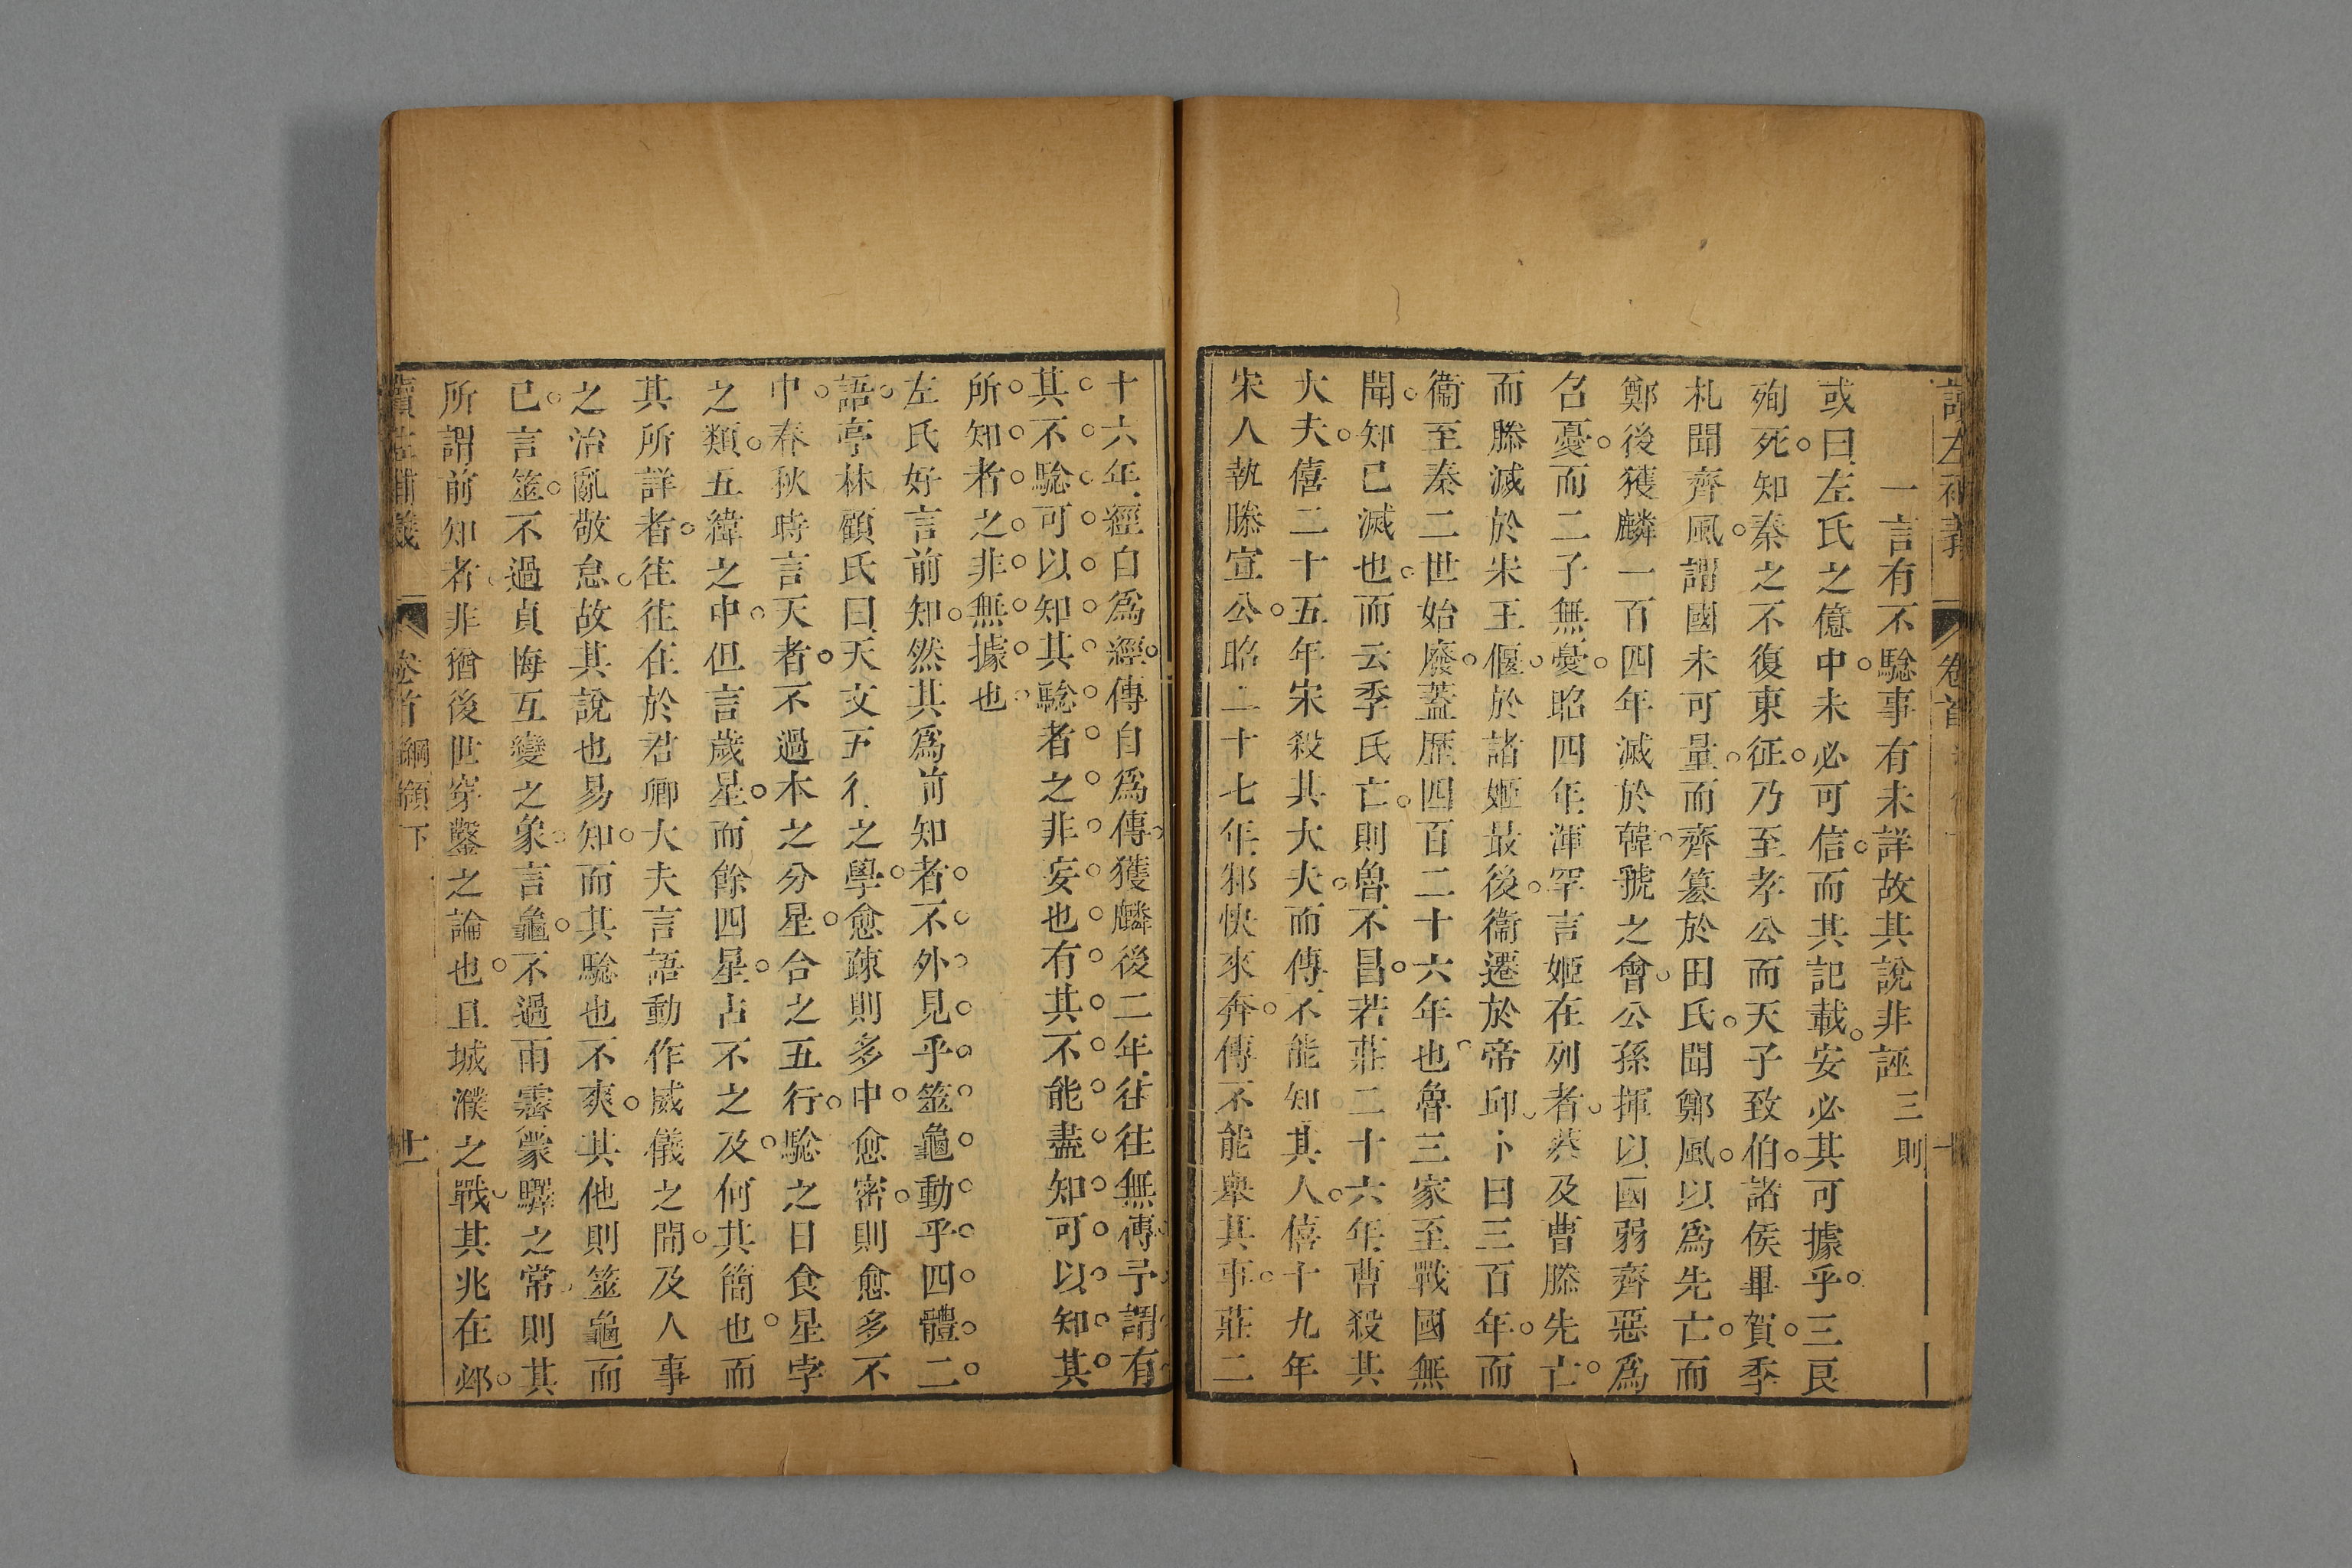 讀左補義 卷首 十
一言有不騐事有未詳故其說非誣三則
或曰左氏之億中未必可信而其記載安必其可據乎三良
殉死知秦之不復東征乃至孝公而天子致伯諸侯畢賀季
札聞齊風謂國未可量而齊篡於田氏聞鄭風以爲先亡而
鄭後獲麟一百四年滅於韓虢之會公孫揮以國弱齊惡爲
名憂而二子無憂昭四年渾罕言姬在列者蔡及曹滕先亡
而滕滅於宋王偃於諸姬最後衞遷於帝邱卜曰三百年而
衞至秦二世始廢蓋歷四百二十六年也魯三家至戰國無
聞知已滅也而云季氏亡則魯不昌若莊二十六年曹殺其
大夫僖二十五年宋殺其大夫而傳不能知其人僖十九年
宋人執滕宣公昭二十七年邾快來奔傳不能舉其事莊二
十六年經自爲經傳自爲傳獲麟後二年往往無傳予謂有
其不騐可以知其騐者之非妄也有其不能盡知可以知其
所知者之非無據也
左氏好言前知然其爲前知者不外見乎筮龜動乎四體二
語亭林顧氏曰天文五行之學愈疎則多中愈密則愈多不
中春秋時言天者不過本之分星合之五行騐之日食星孛
之類五緯之中但言歲星而餘四星占不之及何其簡也而
其所詳者往往在於君卿大夫言語動作威儀之間及人事
之治亂敬怠故其說也易知而其騐也不爽其他則筮龜而
已言筮不過貞悔互變之象言龜不過雨霽蒙驛之常則其
所謂前知者非猶後世穿鑿之論也且城濮之戰其兆在邲
讀左補義 卷首 綱領下 十一